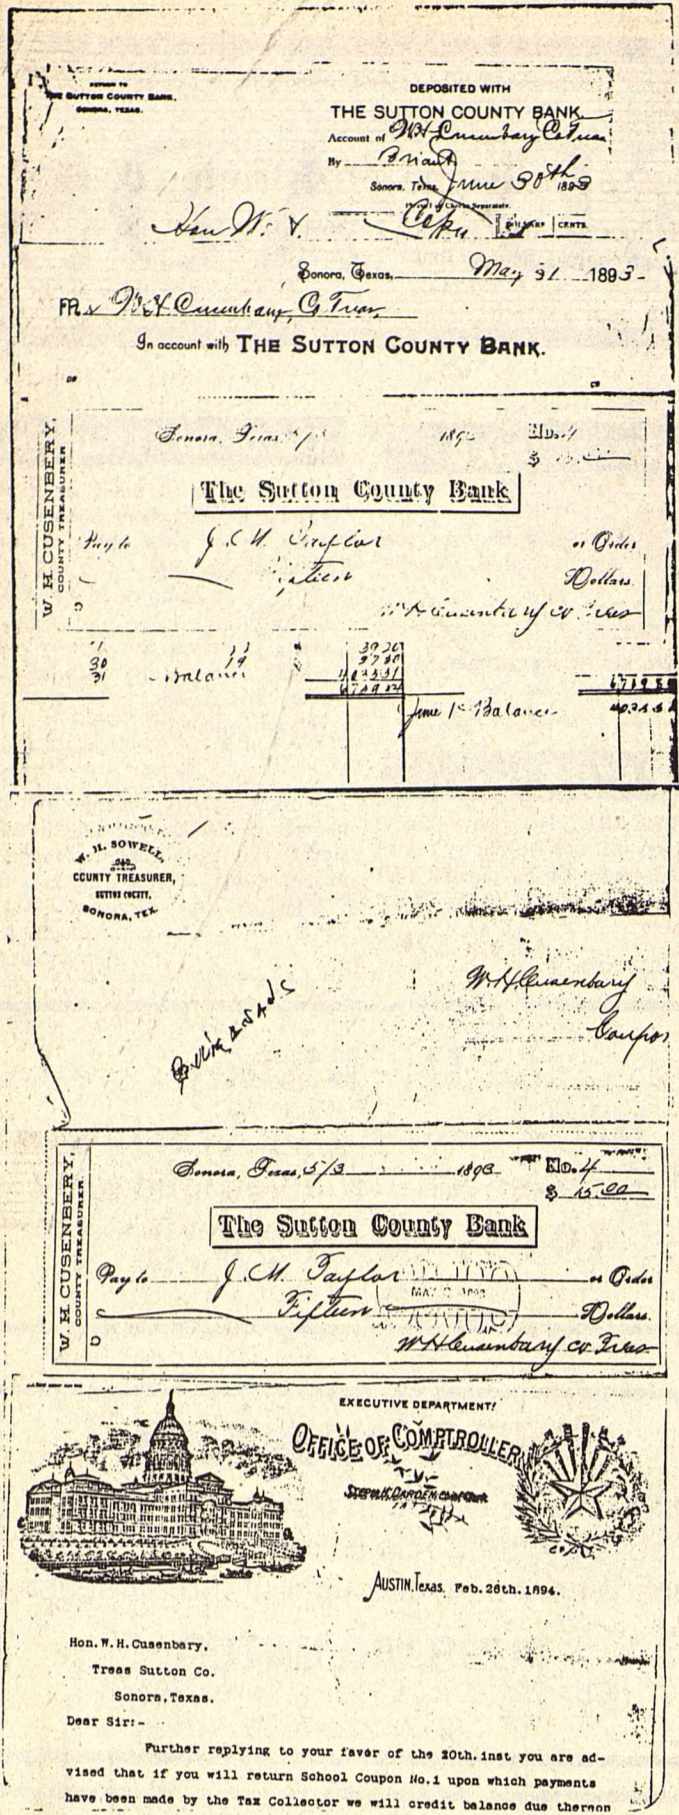 RETURN TO
THE SUTTON COUNTY BANK,
SONORA, TEXAS.
DEPOSITED WITH
THE SUTTON COUNTY BANK
Account of W H Cusenbary Co Treas
By Briant
Sonora, Texas, June 30th 1893
DOLLARS CENTS.
Hon W. H.
Sonora, Texas, May 31 1893
W H Cusenbary, Co Treas,
In account with THE SUTTON COUNTY BANK.
W. H. CUSENBERY,
COUNTY TREASURER
Sonora, Texas, 189
No. 4
$
The Sutton County Bank
Pay to J. M. Taylor or Order
Dollars.
W H Cusenbary Co Treas
30 19
31 Balance
June 1st Balance
W. H. SOWELL,
COUNTY TREASURER,
SUTTON COUNTY.
SONORA, TEX.
W H Cusenbary
Coupon
W. H. CUSENBERY,
COUNTY TREASURER.
Sonora, Texas, 5/3 1893 No. 4
$ 15.00
The Sutton County Bank
Pay to J. M. Taylor or Order
Fifteen Dollars.
W H Cusenbary Co Treas
EXECUTIVE DEPARTMENT
OFFICE OF COMPTROLLER
AUSTIN, Texas. Feb. 26th. 1894.
Hon. W. H. Cusenbary,
Treas Sutton Co.
Sonora, Texas.
Dear Sir:-
Further replying to your favor of the 20th. inst you are ad-
vised that if you will return School Coupon No. 1 upon which payments
have been made by the Tax Collector we will credit balance due thereon